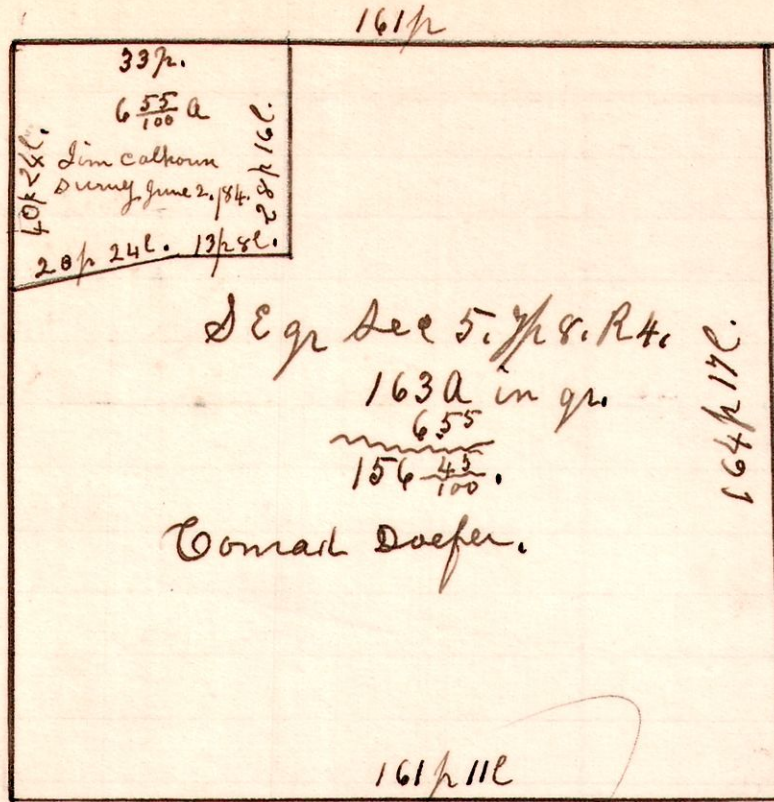 161p
33p.
6 55/100 a
40p 24l.
Jim Calhoun
Survey June 2. 84.
28p 16l.
20p 24l. 13p 8l.
S E qr Sec 5. Tp 8. R 4.
163 a in qr.
6.55
156 45/100.
164p 17l.
Conrad Doefer.
161p 11l